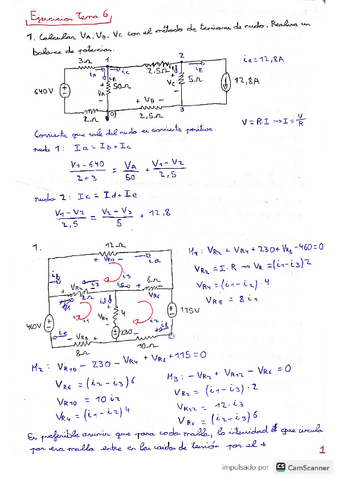 Ejercicios Tema 6
1. Calcular VA, VB, VC con el método de tensiones de nudo. Realiza un
balance de potencias.
3Ω 1 2,5Ω 2 ie = 12,8A
640V 50Ω VC 5Ω 12,8A
+ VB -
2Ω 2,5Ω 3
V = R·I → I = V/R
Corriente que sale del nudo es corriente positiva.
nudo 1: Ia = Ib + Ic
V1 - 640 / 2 + 3 = VA / 50 + V1 - V2 / 2,5
nudo 2: Ic = Id + Ie
V1 - V2 / 2,5 = V2 - V3 / 5 + 12,8
1. 12Ω
M1: VR2 + VR4 + 230 + VR8 - 460 = 0
VR2 = I·R → VR = (i1 - i3) 2
VR4 = (i1 - i2) · 4
VR8 = 8 i1
2Ω 6Ω
460V 4 230 115V
8Ω 10Ω
M2: VR10 - 230 - VR4 + VR6 + 115 = 0
VR6 = (i2 - i3) 6
VR10 = 10 i2
VR4 = (i1 - i2) 4
M3: - VR2 + VR12 - VR6 = 0
VR2 = (i1 - i3) · 2
VR12 = 12 · i3
VR6 = (i2 - i3) 6
Es preferible asumir que para cada malla, la intensidad que circula
por esa malla entre en las caídas de tensión por el +
1
impulsado por CS CamScanner